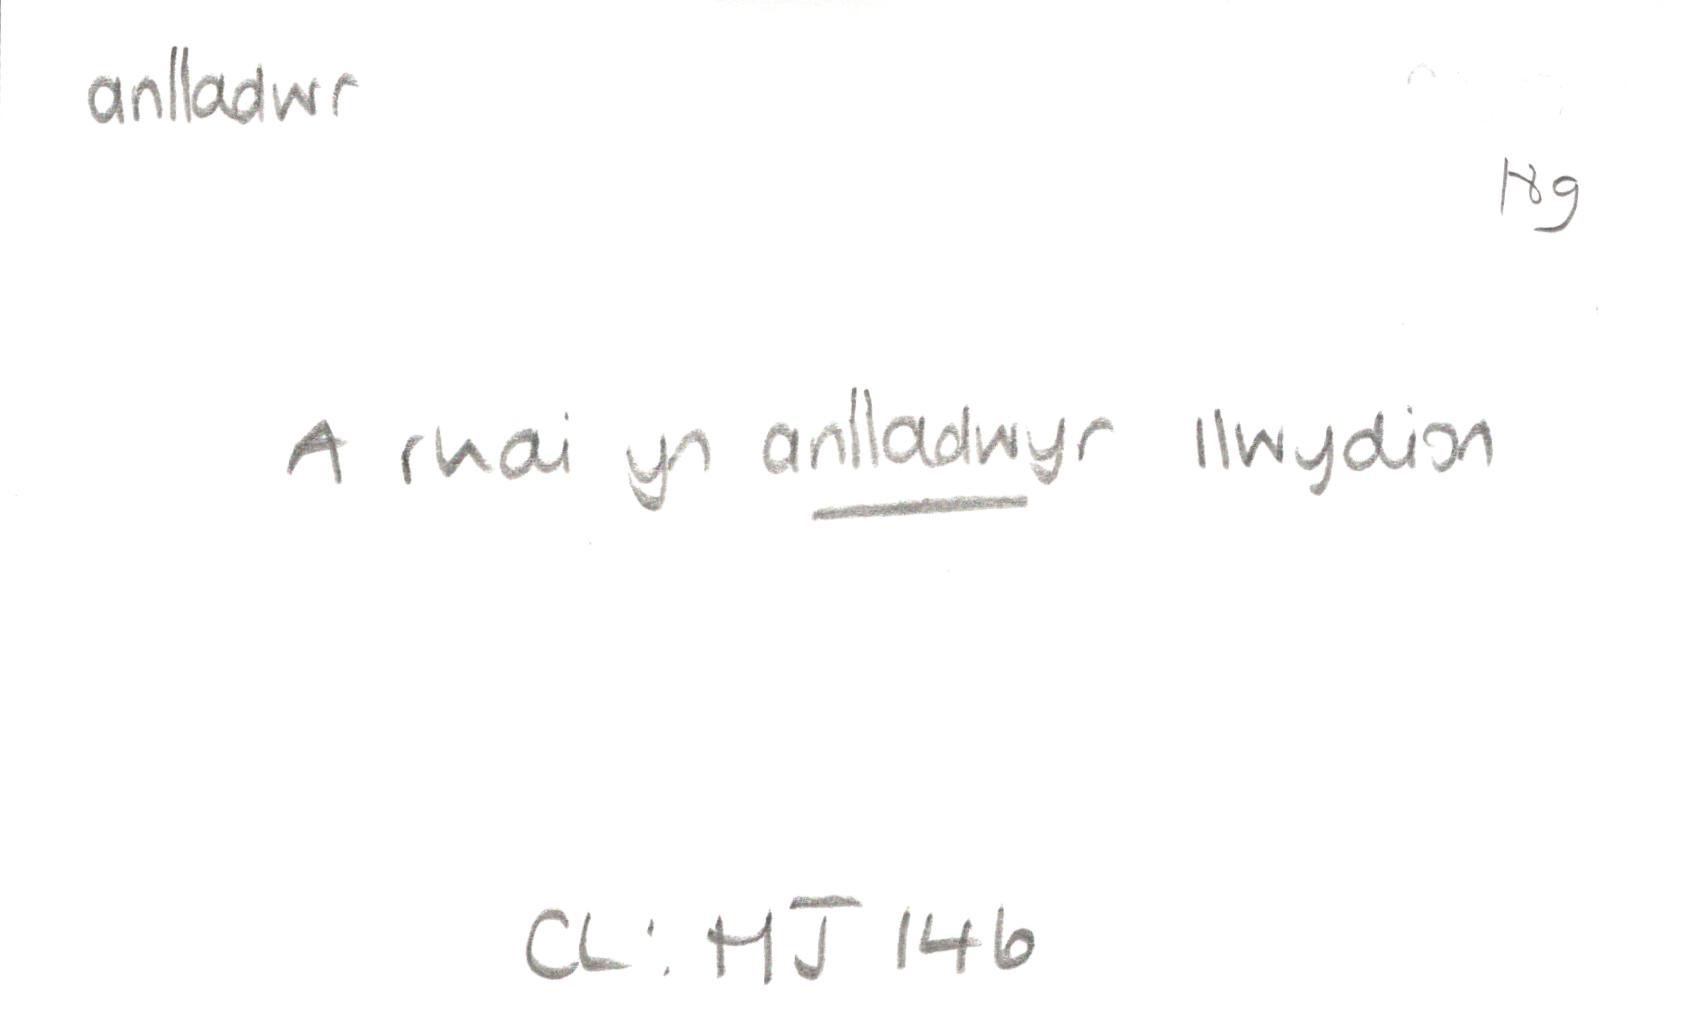 anlladwr
A rhai yn anlladwyr llwydion
CL: HJ 146